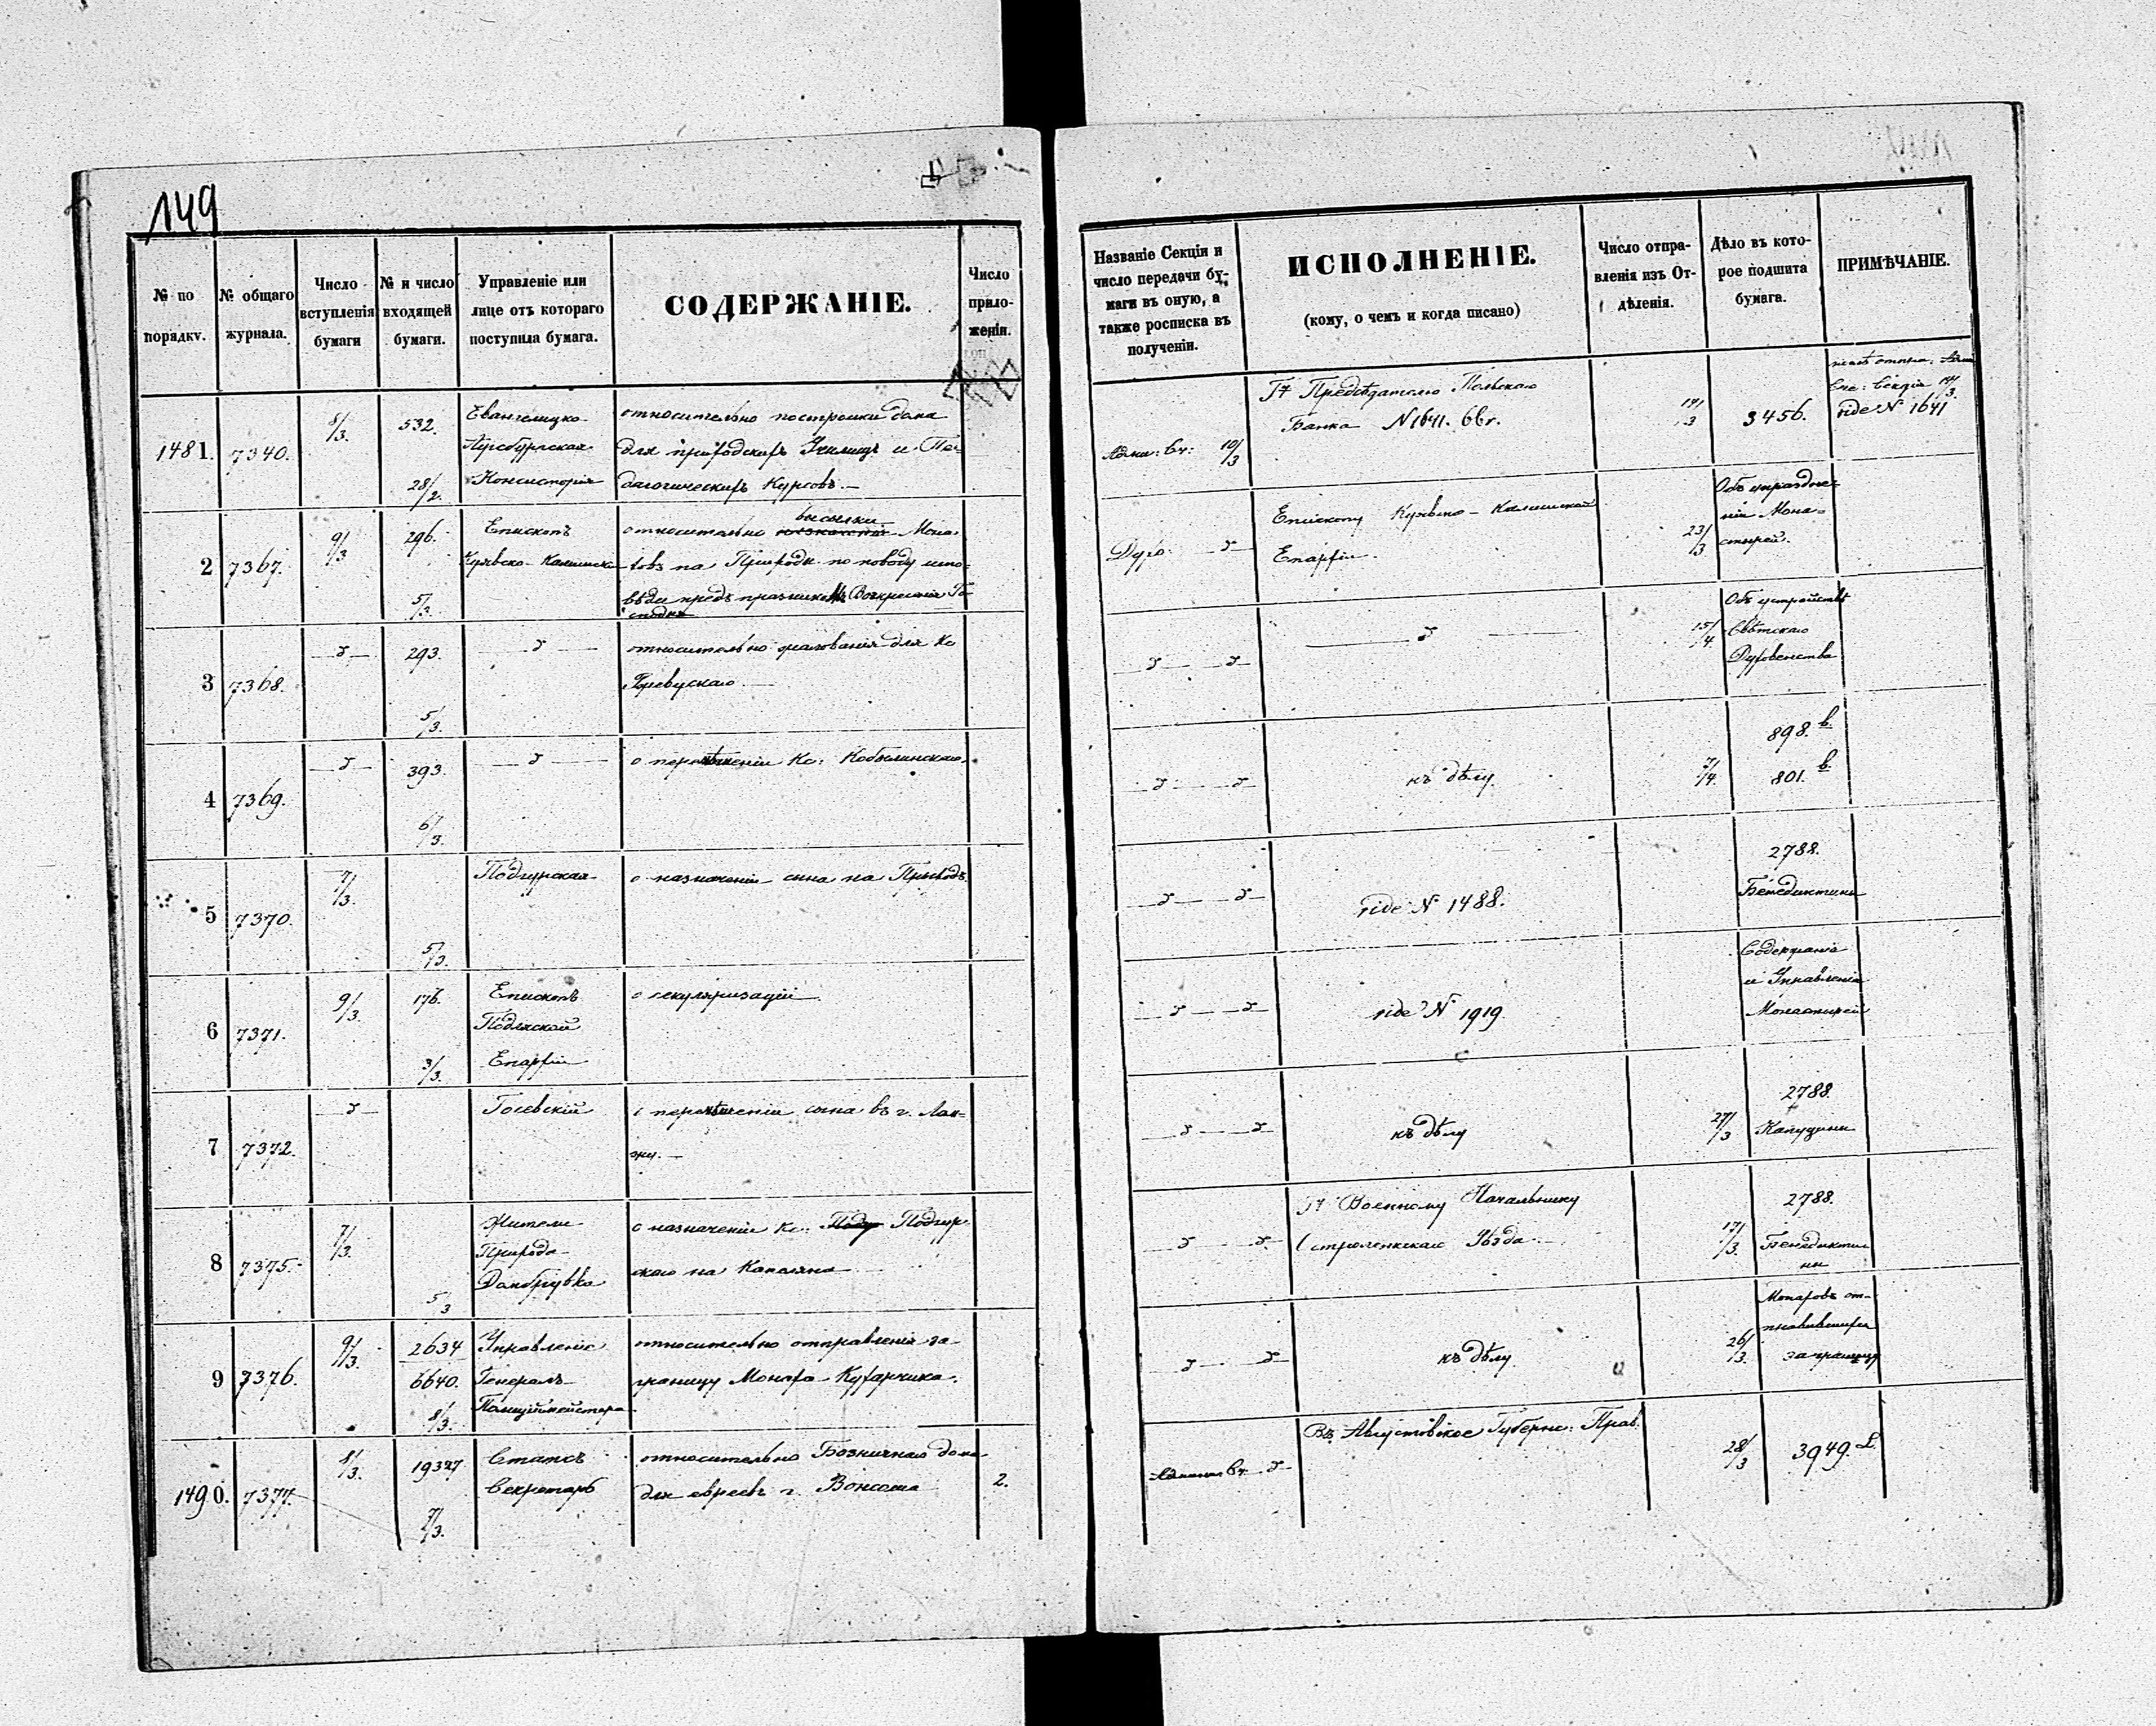 149
№ по порядку.
№ общаго журнала.
Число вступленія бумаги
№ и число входящей бумаги.
Управленіе или лице отъ котораго поступила бумага.
СОДЕРЖАНІЕ.
Число приложеній.
1481.
7340.
8/3.
532.
28/2.
Евангелицко
Аугсбургская
Консисторія
относительно постройки дома
для приходскихъ Училищъ и Пе-
дагогическихъ Курсовъ.—
2
7367.
9/3
296.
5/3.
Епископъ
Куявско-Калишский
высылки
относительно назначенія Мона-
ховъ на Приходы по поводу испо-
вѣди предъ празникомъ Воскресенія Го-
сподня
3
7368.
293.
5/3.
относительно жалованія для Кс
4
7369.
393.
6/3.
о перемѣщеніи Кс: Кобылинскаго.
5
7370.
7/3.
5/3.
Подгурская
о назначеніи сына на Приходъ.
6
7371.
9/3.
176.
3/3.
Епископъ
Подляской
Епархіи
о секуляризаціи
7
7372.
Госевскій
о перемѣщеніи сына въ г. Лом-
жу.—
8
7375.
7/3.
5/3
Жители
Прихода
Домбрувка
о назначеніи Кс: Подгур
скаго на Капеляна
9
7376.
9/3.
2634
6640.
8/3.
Управленіе
Генералъ
Полиціймейстера
относительно отправленія за
границу Монаха Кухарчика.
1490.
7377.
8/3.
19327
7/3.
Статсъ
Секретарь
относительно Божничнаго дома
для евреевъ г. Вонсоша
2.
Названіе Секціи и число передачи бумаги въ оную, а также росписка въ полученіи.
ИСПОЛНЕНІЕ.
(кому, о чемъ и когда писано)
Число отправленія изъ Отдѣленія.
Дѣло въ которое подшита бумага.
ПРИМѢЧАНІЕ.
10/3
Гну Предсѣдателю Польскаго
Банка N 1641. 66 г.
3456.
vide N 1641
Духо:
Епископу Куявско-Калишской
Епархіи.
23/3
Объ упраздне-
ніи Мона-
стырей.
15/4.
Объ устройствѣ
Свѣтскаго
Духовенства
къ дѣлу.
7/4.
898. b.
801. b.
vide N 1488.
2788.
Бенедиктины
vide N 1919.
Содержаніе
и Управленіе
Монастырей
къ дѣлу
27/3
2788.
Капуцины
Гну Военному Начальнику
Остроленкскаго Уѣзда.
17/3.
2788.
Бенедикти
ны
къ дѣлу.
26/3.
Монаховъ от-
правившихся
за границу
Въ Августовское Губерн: Прав.
28/3
3949.